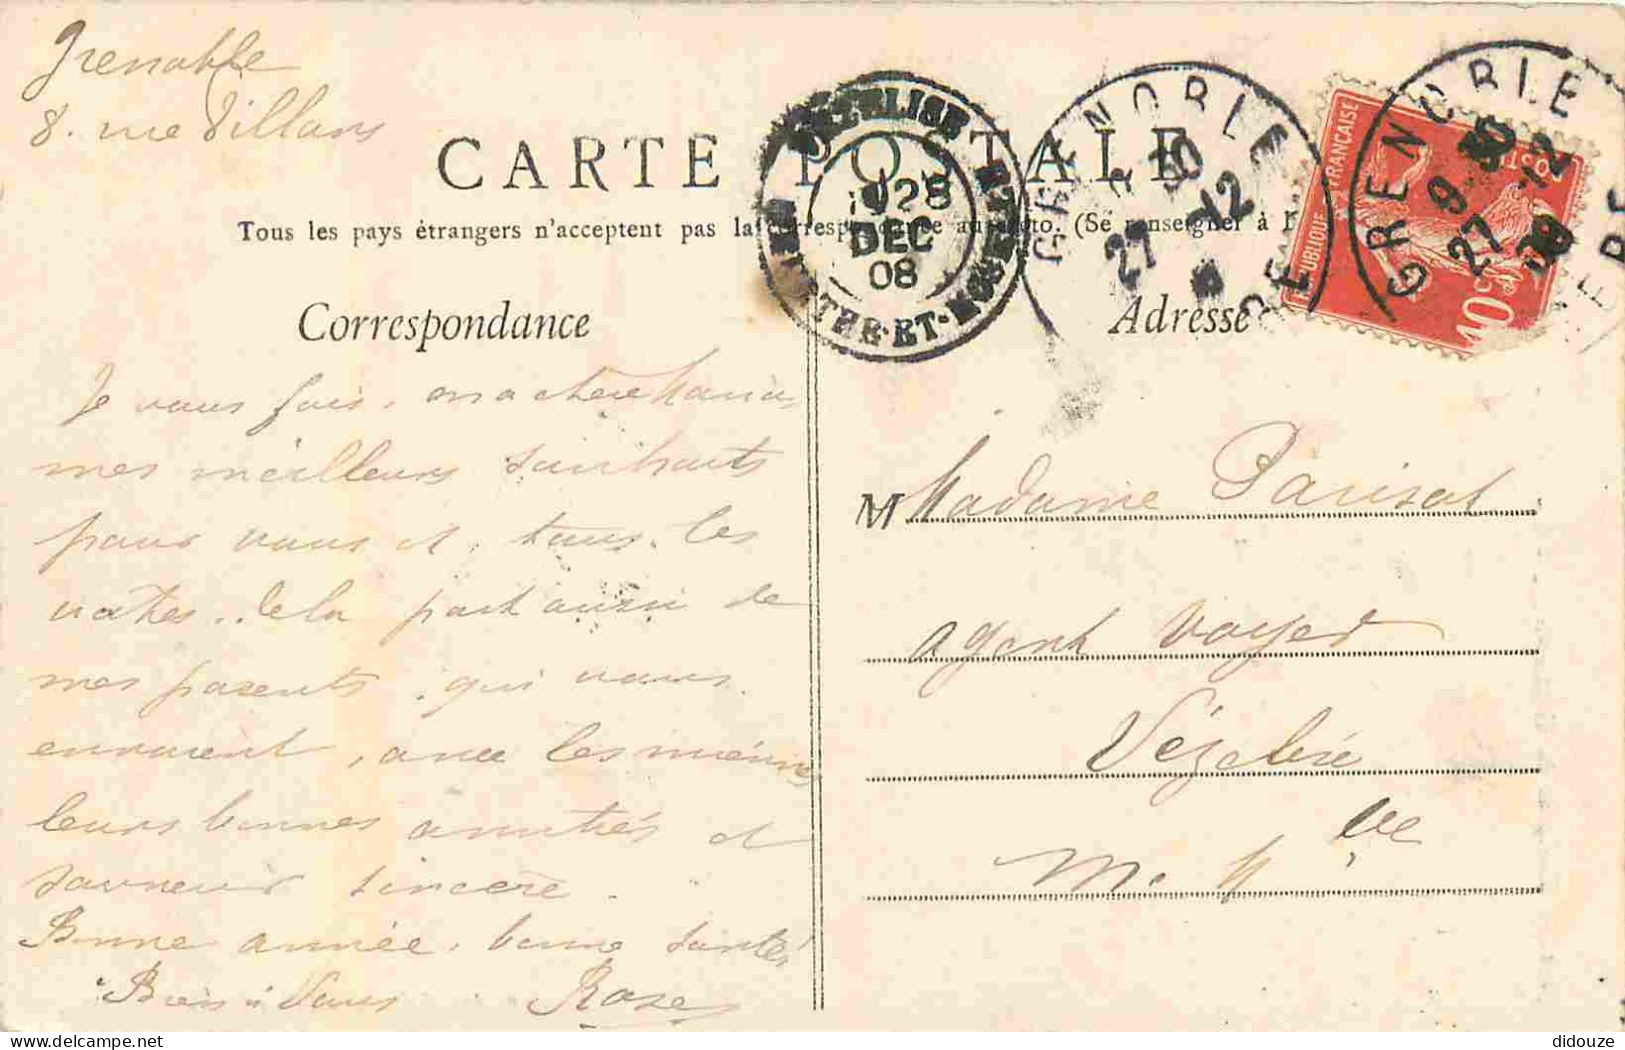 Grenoble
8. rue Villars
CARTE POSTALE
Tous les pays étrangers n'acceptent pas la correspondance au recto. (Se renseigner à l
Correspondance
Adresse
VÉZELISE
28
DEC
08
MEURTHE-ET-MOSELLE
GRENOBLE
30
27 12
ISERE
GRENOBLE
9 30
27 12
08
RÉPUBLIQUE FRANÇAISE
10c
Je vous fais, ma chère Maria,
mes meilleurs souhaits
pour vous et tous les
votres.. Cela part aussi de
mes parents qui vous
envoient, avec les miennes
leurs bonnes amitiés et
souvenir sincère.
Bonne année, bonne santé
Bien à Vous Rose
M Madame Parisot
agent voyer
Vézelise
M. et Mlle
didouze